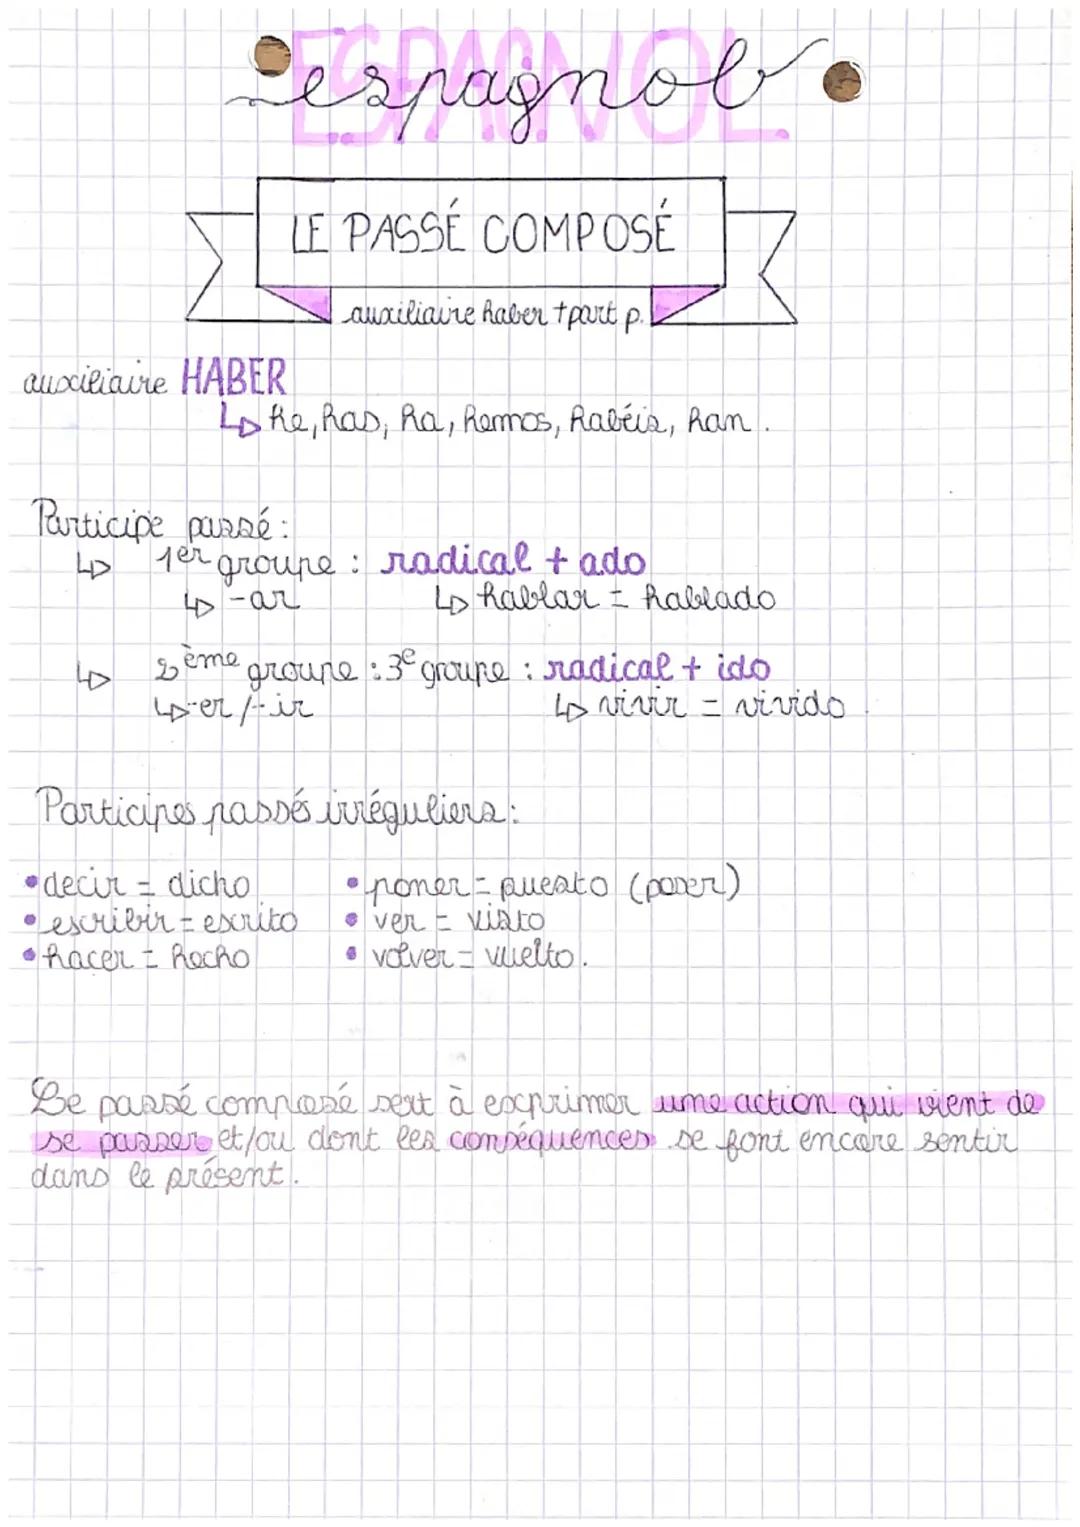 ESPAGNOL
espagnol
LE PASSÉ COMPOSÉ
auxiliaire haber + part p.
auxiliaire HABER
↳ he, has, ha, hemos, habéis, han.
Participe passé :
↳ 1er groupe : radical + ado
↳ -ar ↳ hablar = hablado
↳ 2ème groupe : 3e groupe : radical + ido
↳ -er / -ir ↳ vivir = vivido.
Participes passés irréguliers :
• decir = dicho • poner = puesto (poser)
• escribir = escrito • ver = visto
• hacer = hecho • volver = vuelto.
Le passé composé sert à exprimer une action qui vient de
se passer et/ou dont les conséquences se font encore sentir
dans le présent.